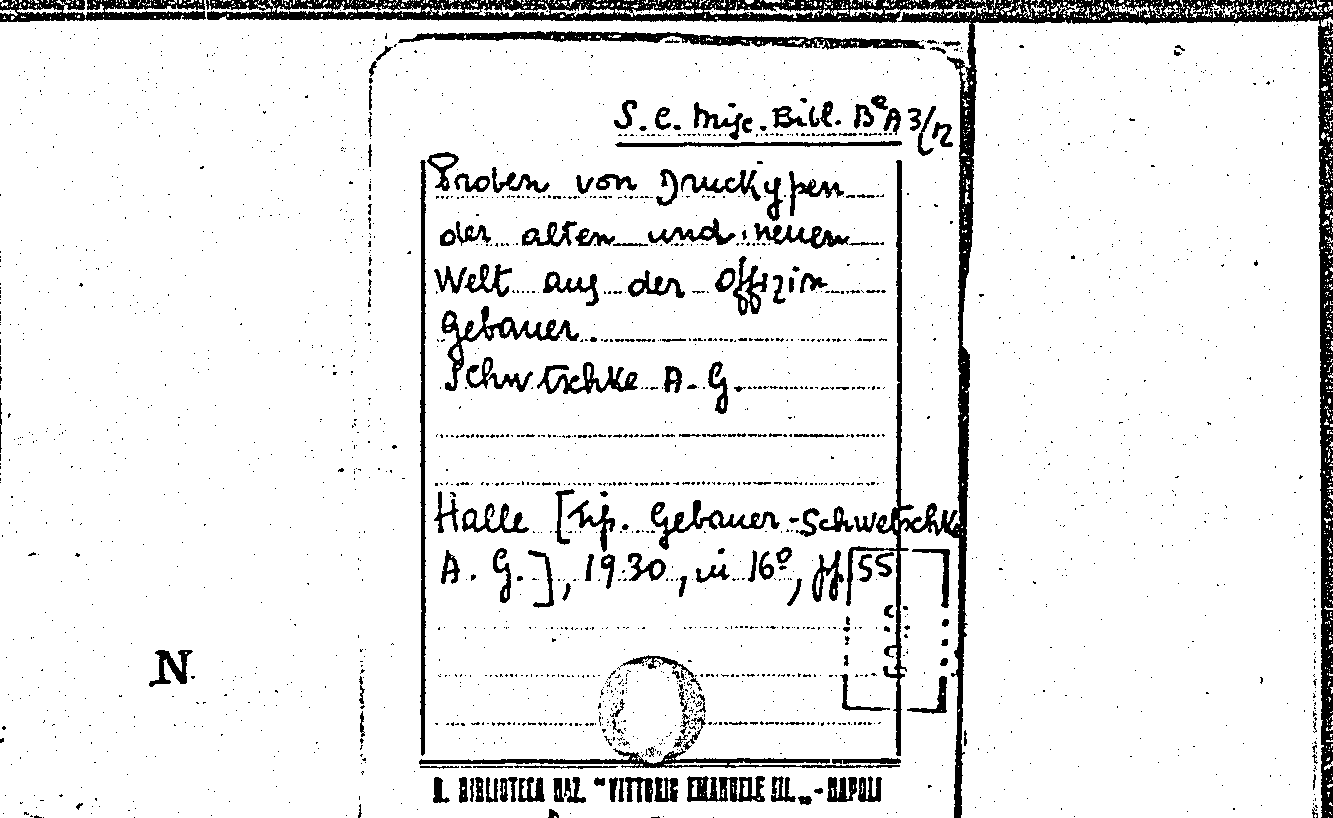 S. C. Misc. Bibl. Bᵃ A 3/12
Proben von Druckypen
der alten und neuen
Welt aus der Offizin
Gebauer.
Schwtschke A. G.
Halle [Tip. Gebauer-Schwetschke
A. G.], 1930, in 16º, ff 55
N
R. BIBLIOTECA NAZ. "VITTORIO EMANUELE III„ - NAPOLI